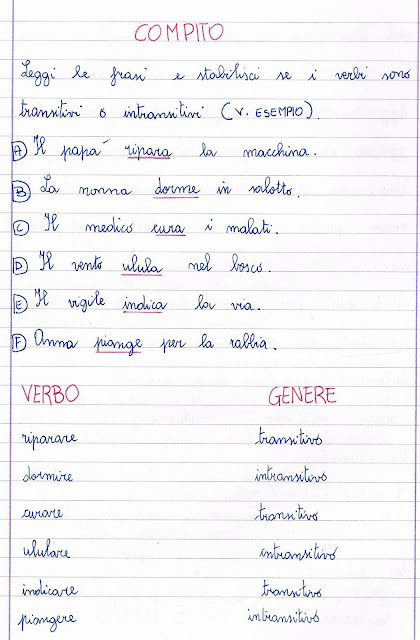 COMPITO
Leggi le frasi e stabilisci se i verbi sono
transitivi o intransitivi (V. ESEMPIO).
A Il papà ripara la macchina.
B La nonna dorme in salotto.
C Il medico cura i malati.
D Il vento ulula nel bosco.
E Il vigile indica la via.
F Anna piange per la rabbia.
VERBO GENERE
riparare transitivo
dormire intransitivo
curare transitivo
ululare intransitivo
indicare transitivo
piangere intransitivo